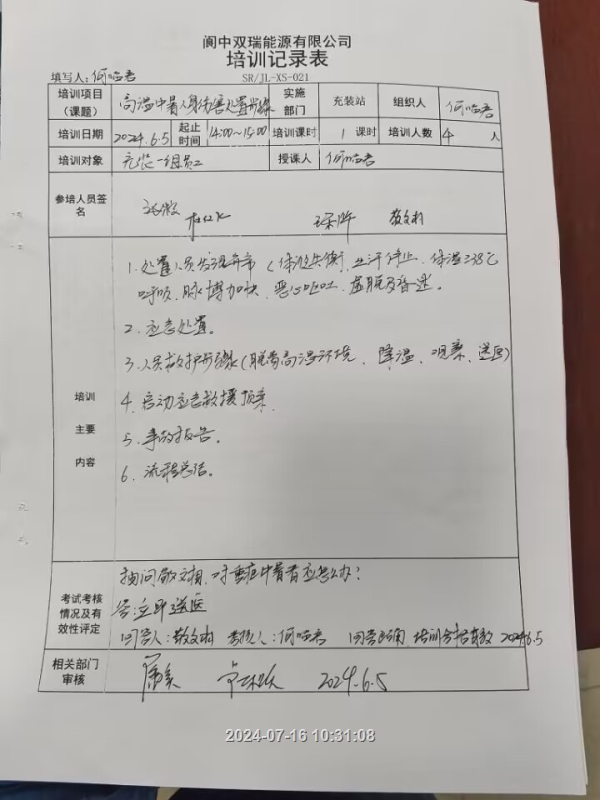 阆中双瑞能源有限公司
培训记录表
填写人: SR/JL-XS-021
培训项目（课题） 高温中暑人身伤害处置 实施部门 充装站 组织人
培训日期 2024.6.5 起止时间 14:00~15:00 培训课时 1 课时 培训人数 4 人
培训对象 充装一组员工 授课人
参培人员签名
培训主要内容
1.处置人员发现异常（体液失衡、出汗停止、体温≥38℃
呼吸、脉搏加快、恶心呕吐、虚脱及昏迷。
2.应急处置。
3.人员救护步骤（脱离高温环境、降温、观察、送医）
4.启动应急救援预案
5.事故报告。
6.流程总结。
考试考核情况及有效性评定
抽问敬文相、对重症中暑者应怎么办？
答:立即送医
回答人:敬文相 考核人: 回答正确、培训合格有效 2024.6.5
相关部门审核 2024.6.5
2024-07-16 10:31:08